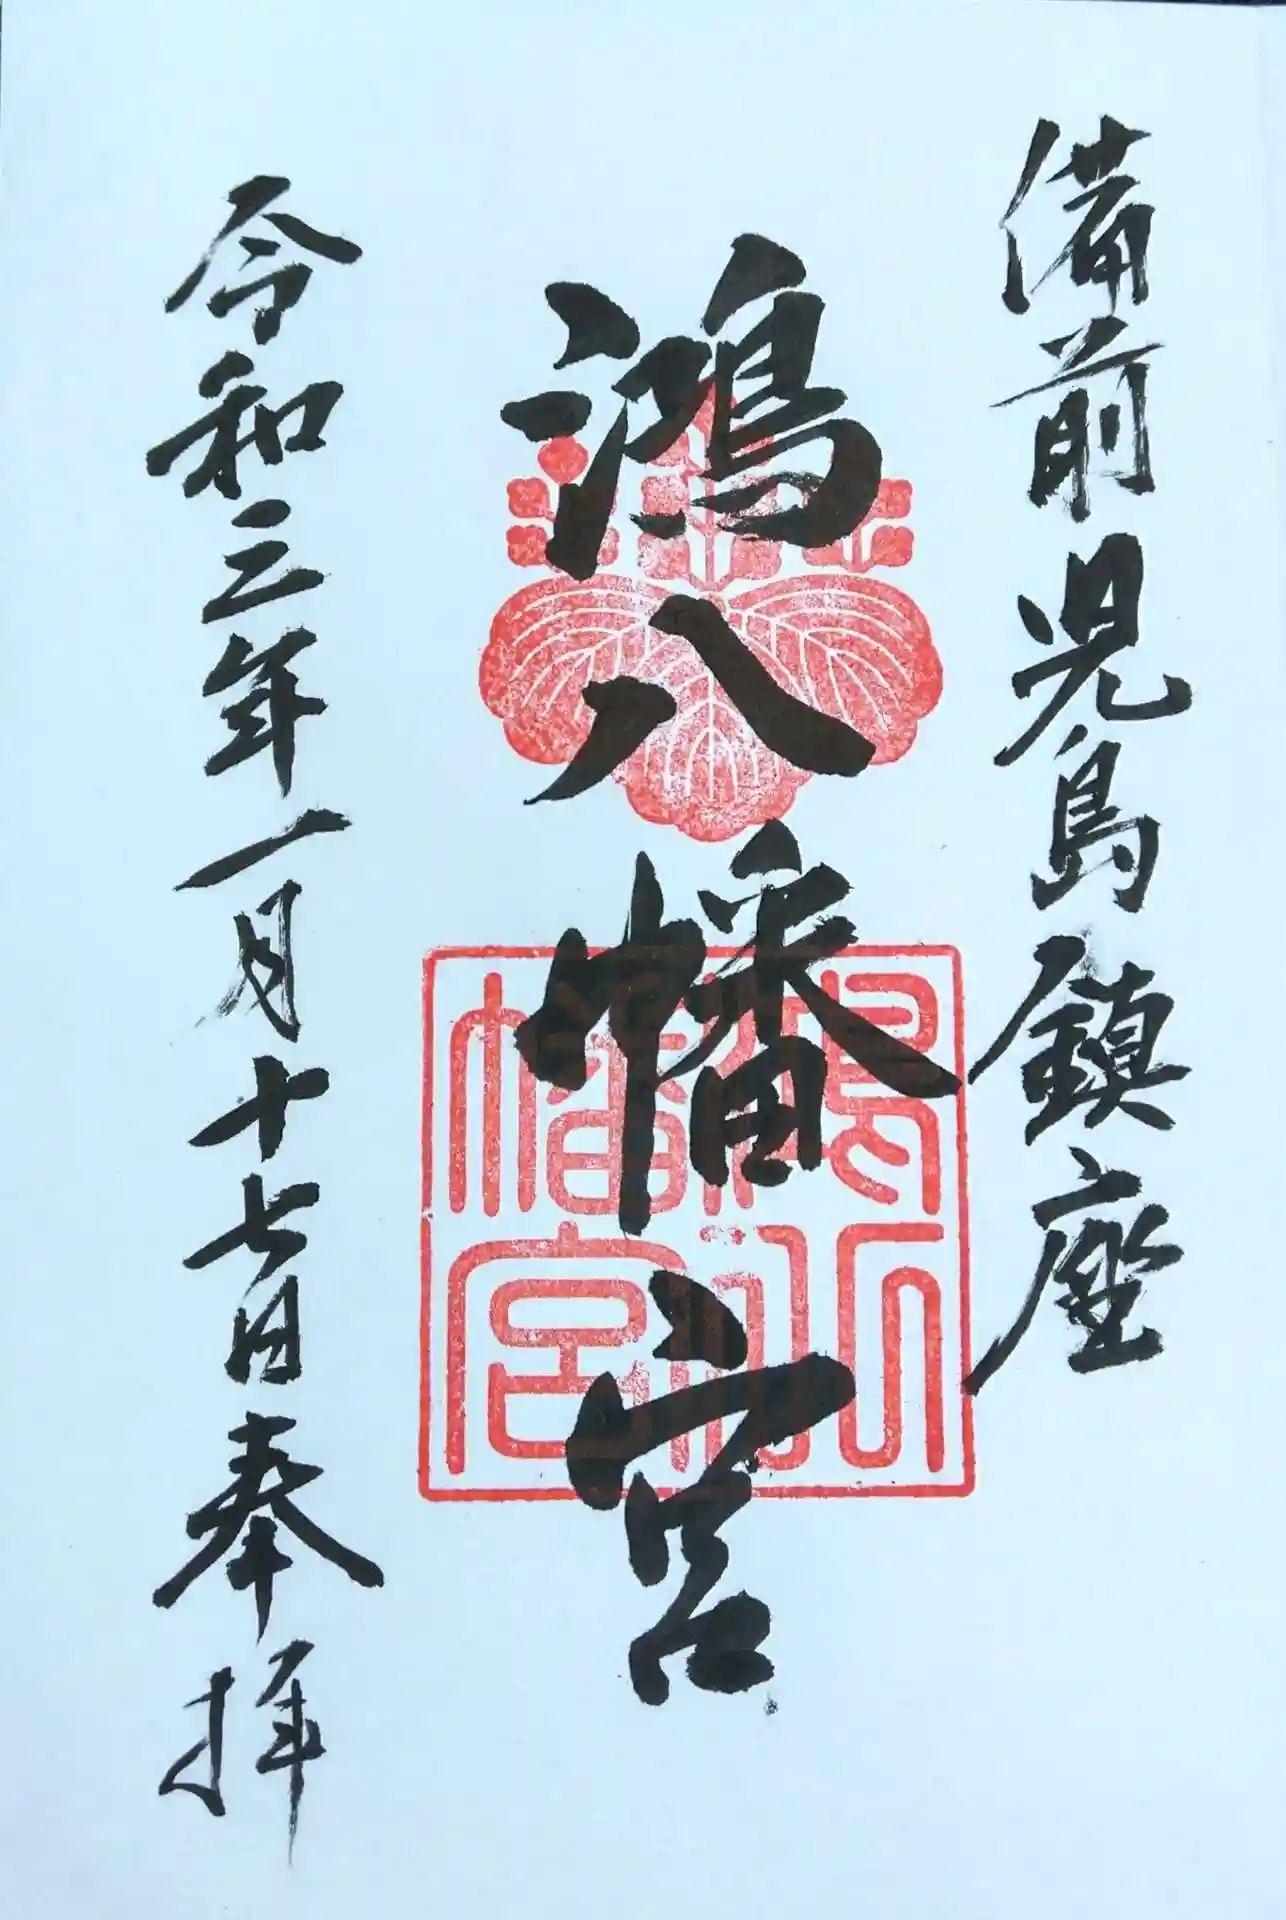 備前児島鎮座
鴻八幡宮
鴻八幡宮
令和三年一月十七日奉拝